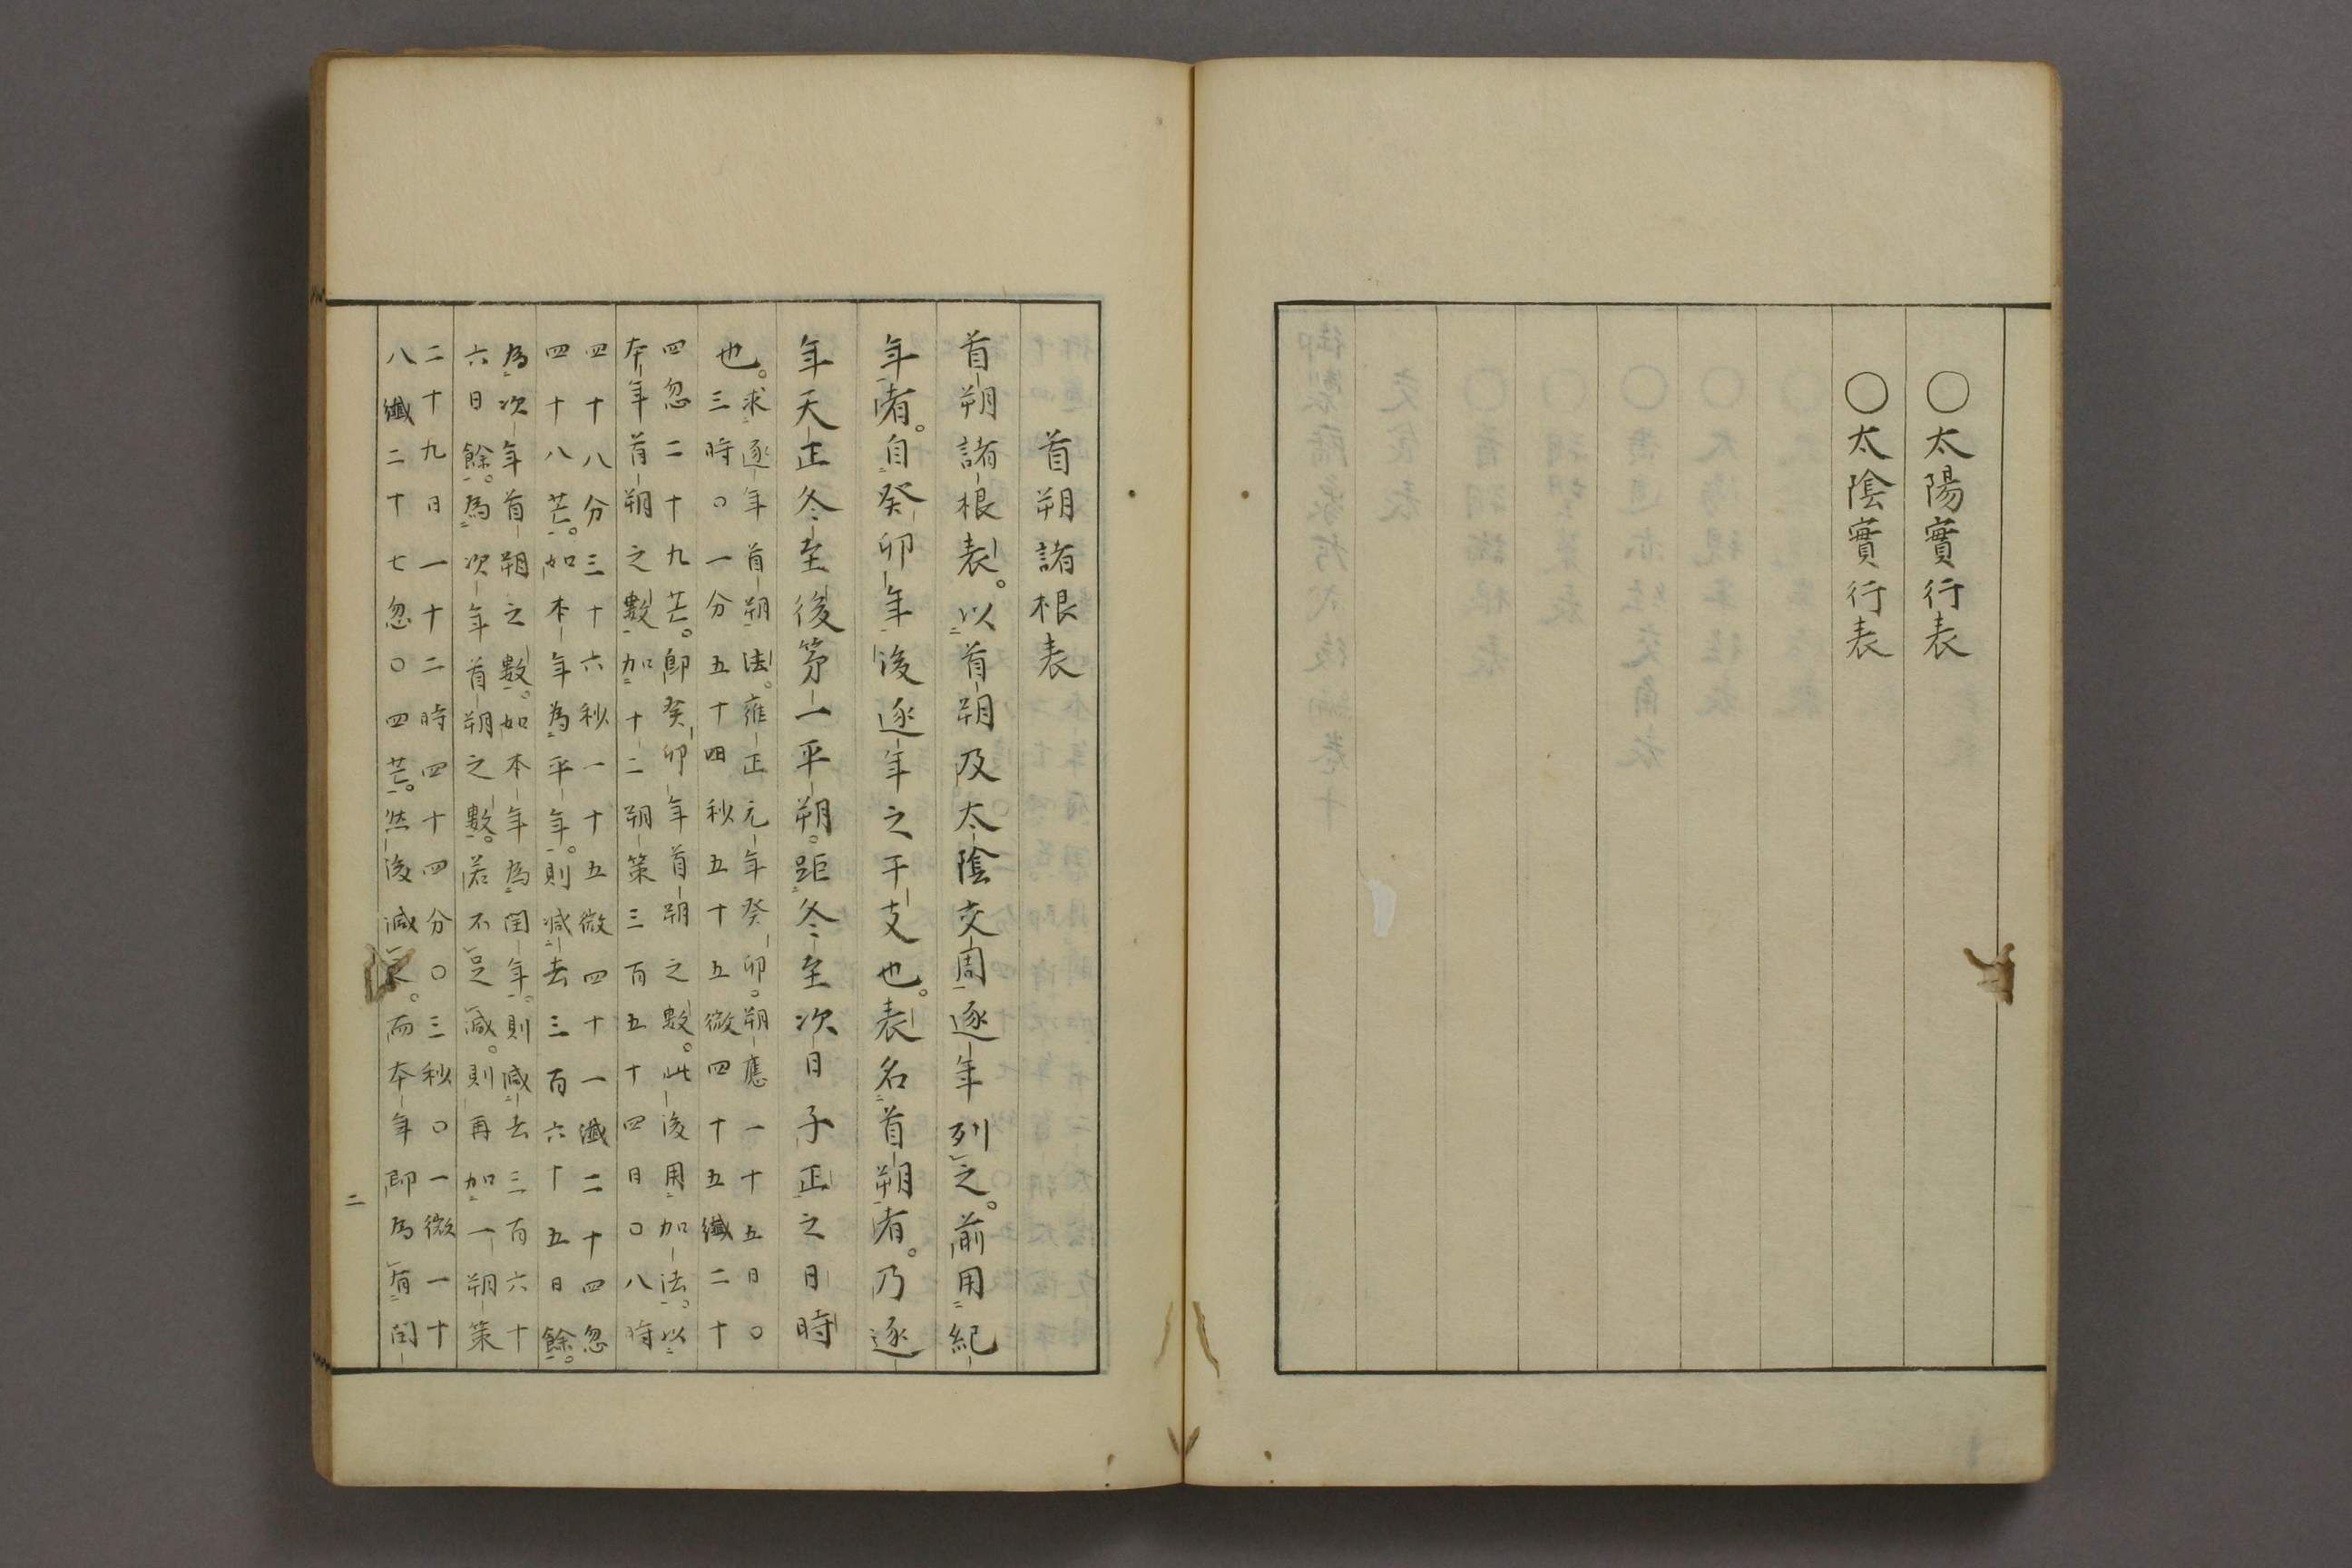 ○太陽實行表
○太陰實行表
首朔諸根表
首朔諸根表。以首朔及太陰交周逐年列之。前用紀
年者。自癸卯年後逐年之干支也。表名首朔者。乃逐
年天正冬至後第一平朔。距冬至次日子正之日時
也。求逐年首朔法。雍正元年癸卯。朔應一十五日〇
三時〇一分五十四秒五十五微四十五纖二十
四忽二十九芒。即癸卯年首朔之數。此後用加法。以
本年首朔之數加十二朔策三百五十四日〇八時
四十八分三十六秒一十五微四十一纖二十四忽
四十八芒。如本年為平年。則減去三百六十五日餘。
為次年首朔之數。如本年為閏年。則減去三百六十
六日餘。為次年首朔之數。若不足減。則再加一朔策
二十九日一十二時四十四分〇三秒〇一微一十
八纖二十七忽〇四芒。然後減之。而本年即為有閏
二